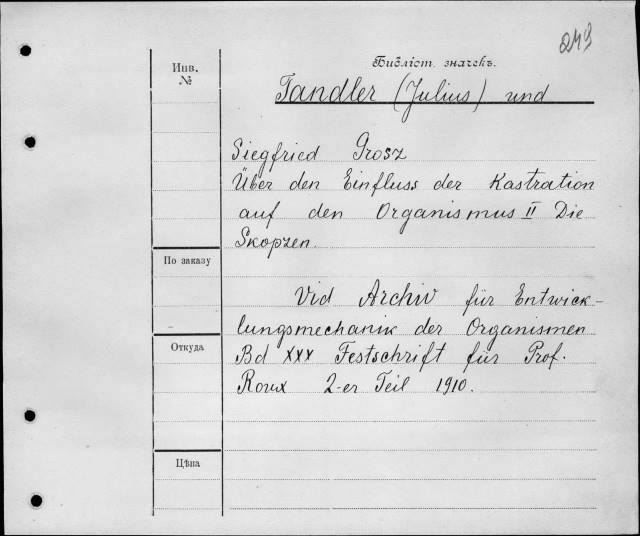 243
Инв.
№
Бібліот. значекъ.
Tandler (Julius) und
Siegfried Grosz
Über den Einfluss der Kastration
auf den Organismus II Die
Skopzen.
По заказу
Vid Archiv für Entwick-
lungsmechanik der Organismen
Откуда
Bd XXX Festschrift für Prof.
Roux 2-er Teil 1910.
Цѣна